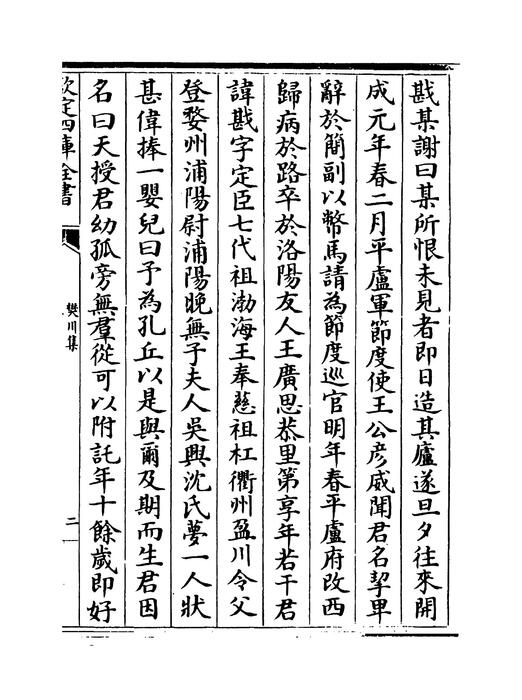 戡某謝曰某所恨未見者即日造其廬遂旦夕往來開
成元年春二月平盧軍節度使王公彦威聞君名挈卑
辭於簡副以幣馬請為節度巡官明年春平盧府改西
歸病於路卒於洛陽友人王廣思恭里第享年若干君
諱戡字定臣七代祖渤海王奉慈祖杠衢州盈川令父
登婺州浦陽尉浦陽晚無子夫人吳興沈氏夢一人狀
甚偉捧一嬰兒曰予為孔丘以是與爾及期而生君因
名曰天授君幼孤旁無羣從可以附託年十餘歲即好
欽定四庫全書
樊川集
二